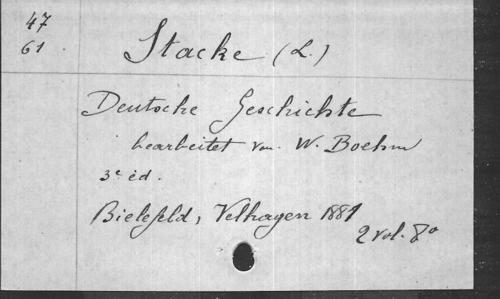 47
61
Stacke (L.)
Deutsche Geschichte
bearbeitet von W. Boehm
3e éd.
Bielefeld, Velhagen 1881
2 vol. 8o